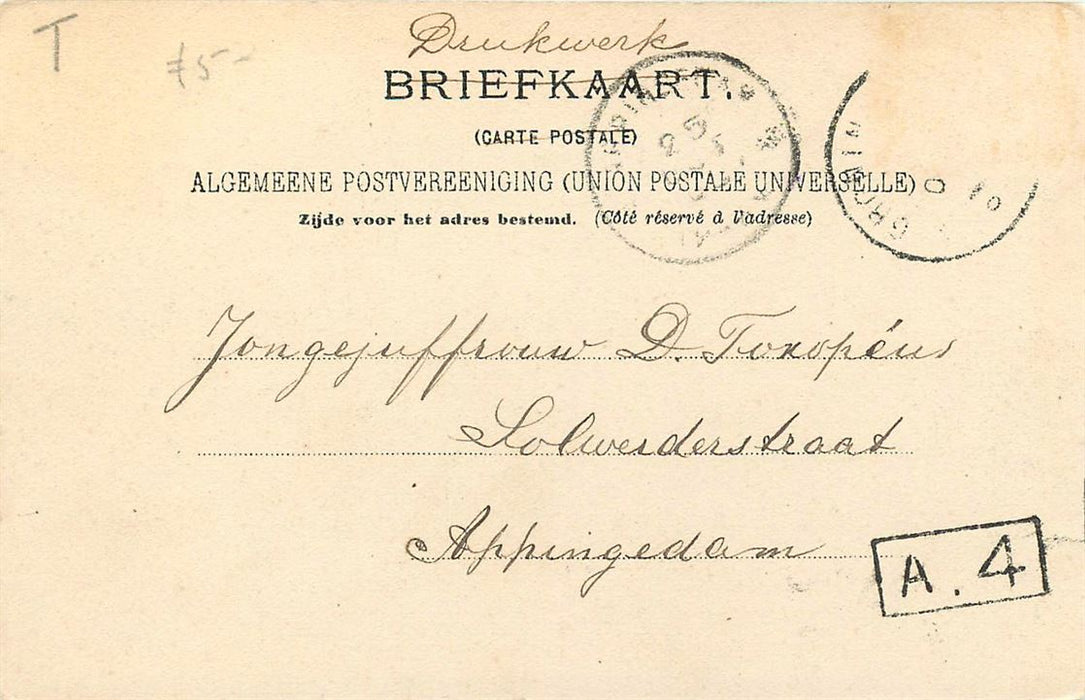 T
75-
Drukwerk
BRIEFKAART.
(CARTE POSTALE)
ALGEMEENE POSTVEREENIGING (UNION POSTALE UNIVERSELLE)
Zijde voor het adres bestemd. (Côté réservé à l'adresse)
GRONIN
Jongejuffrouw D. Toxopéus
Solwerderstraat
Appingedam
A. 4